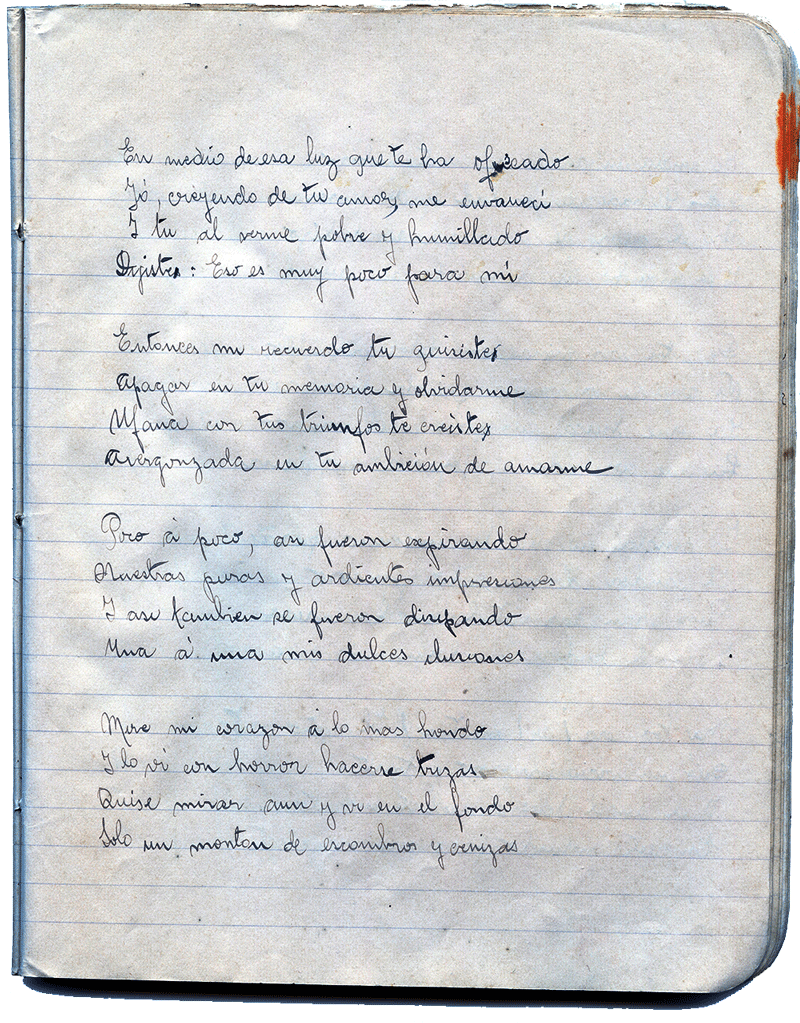 En medio de esa luz que te ha ofuscado.
Yó, creyendo de tu amor, me envanecí
I tu al verme pobre y humillado
Dijistes: Eso es muy poco para mí
Entonces mi recuerdo tu quisistes
Apagar en tu memoria y olvidarme
Ufana con tus triunfos te creistes
Avergonzada en tu ambición de amarme
Poco á poco, asi fueron expirando
Nuestras puras y ardientes impresiones
I asi tambien se fueron disipando
Una á una mis dulces ilusiones
Mire mi corazon á lo mas hondo
I lo ví con horror hacerse trizas
Quise mirar aun y vi en el fondo
Solo un monton de escombros y cenizas